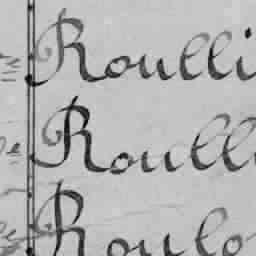 Roulli
Roull
Roulo